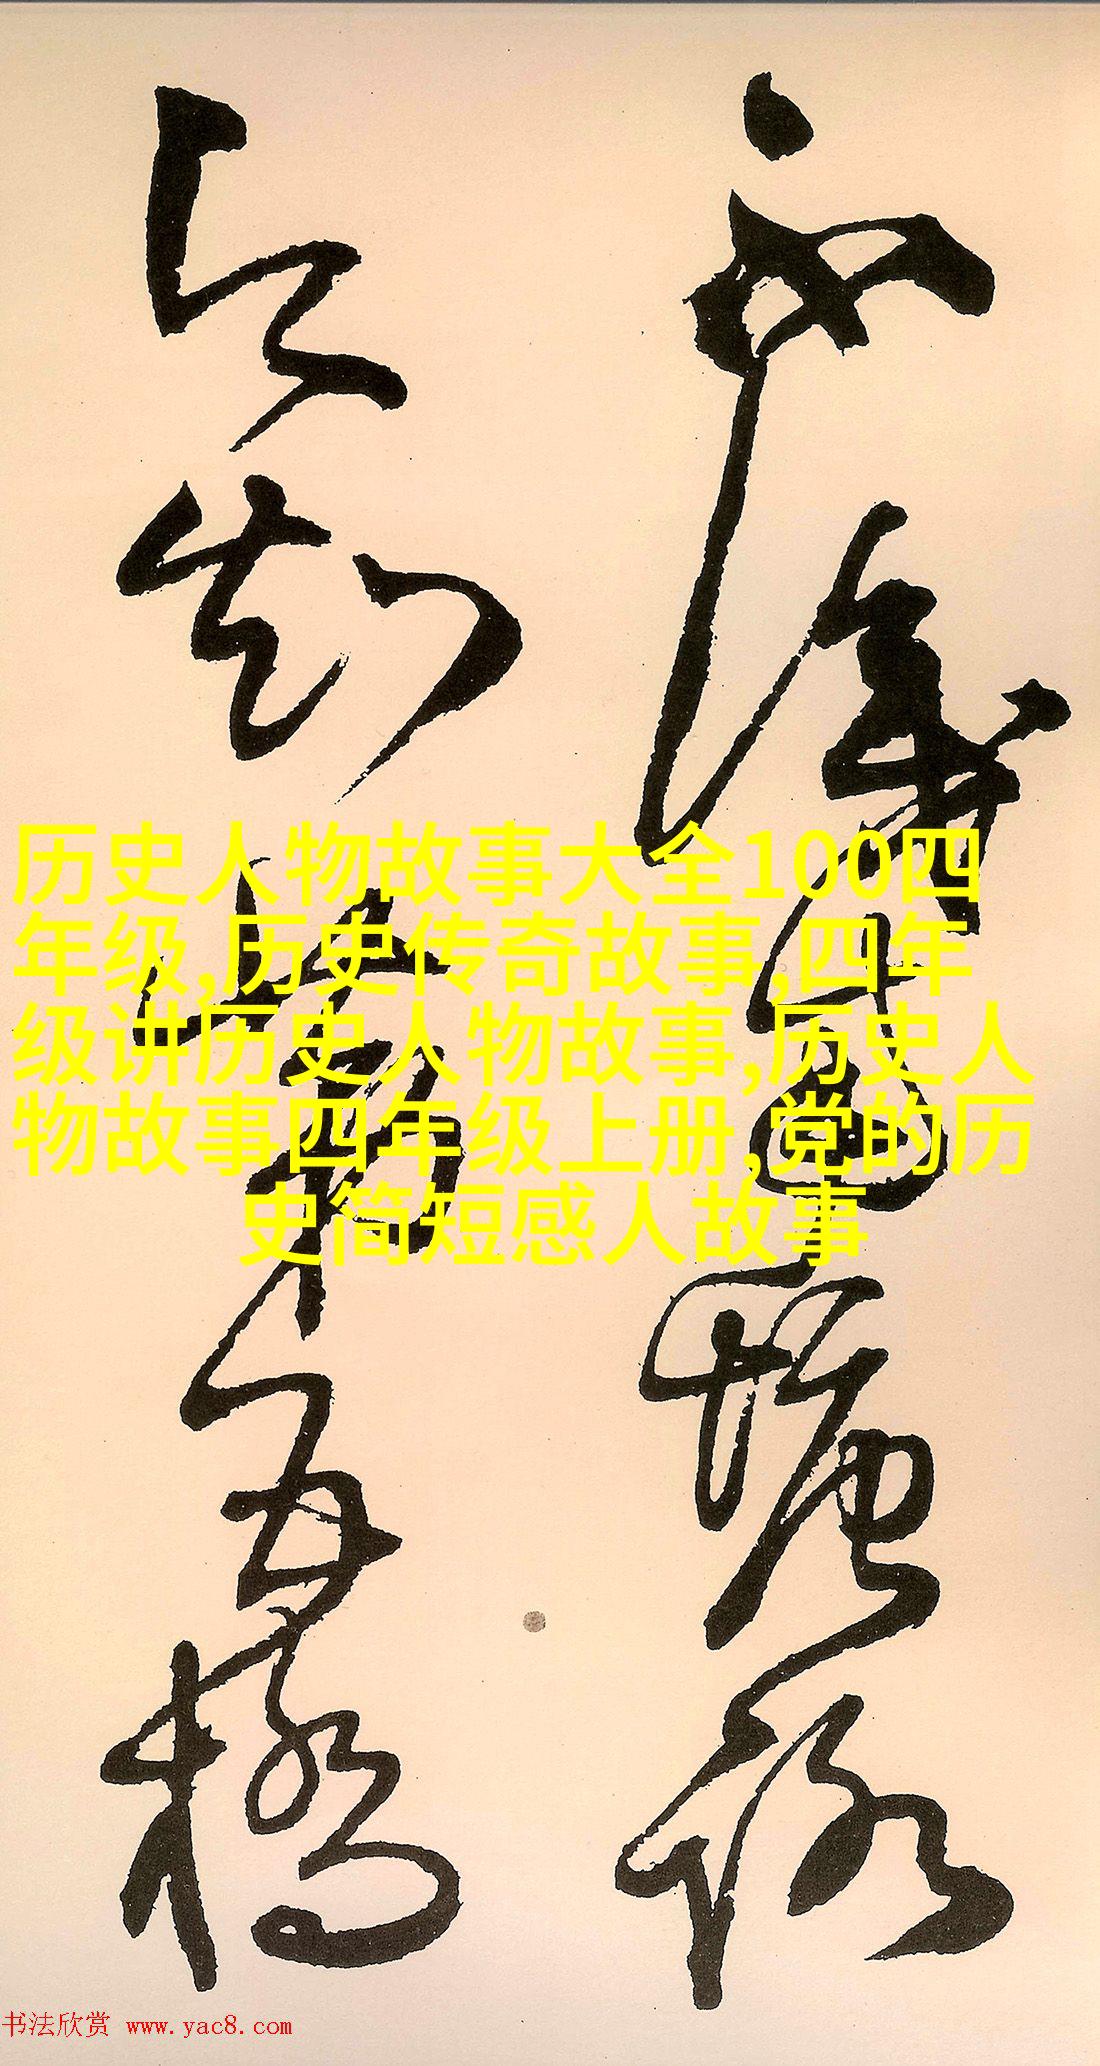 不識南塘路
今知第五橋
历史人物故事大全100四
年级,历史传奇故事,四年
级讲历史人物故事,历史人
物故事四年级上册,党的历
史简短感人故事
书法欣赏 www.yac8.com